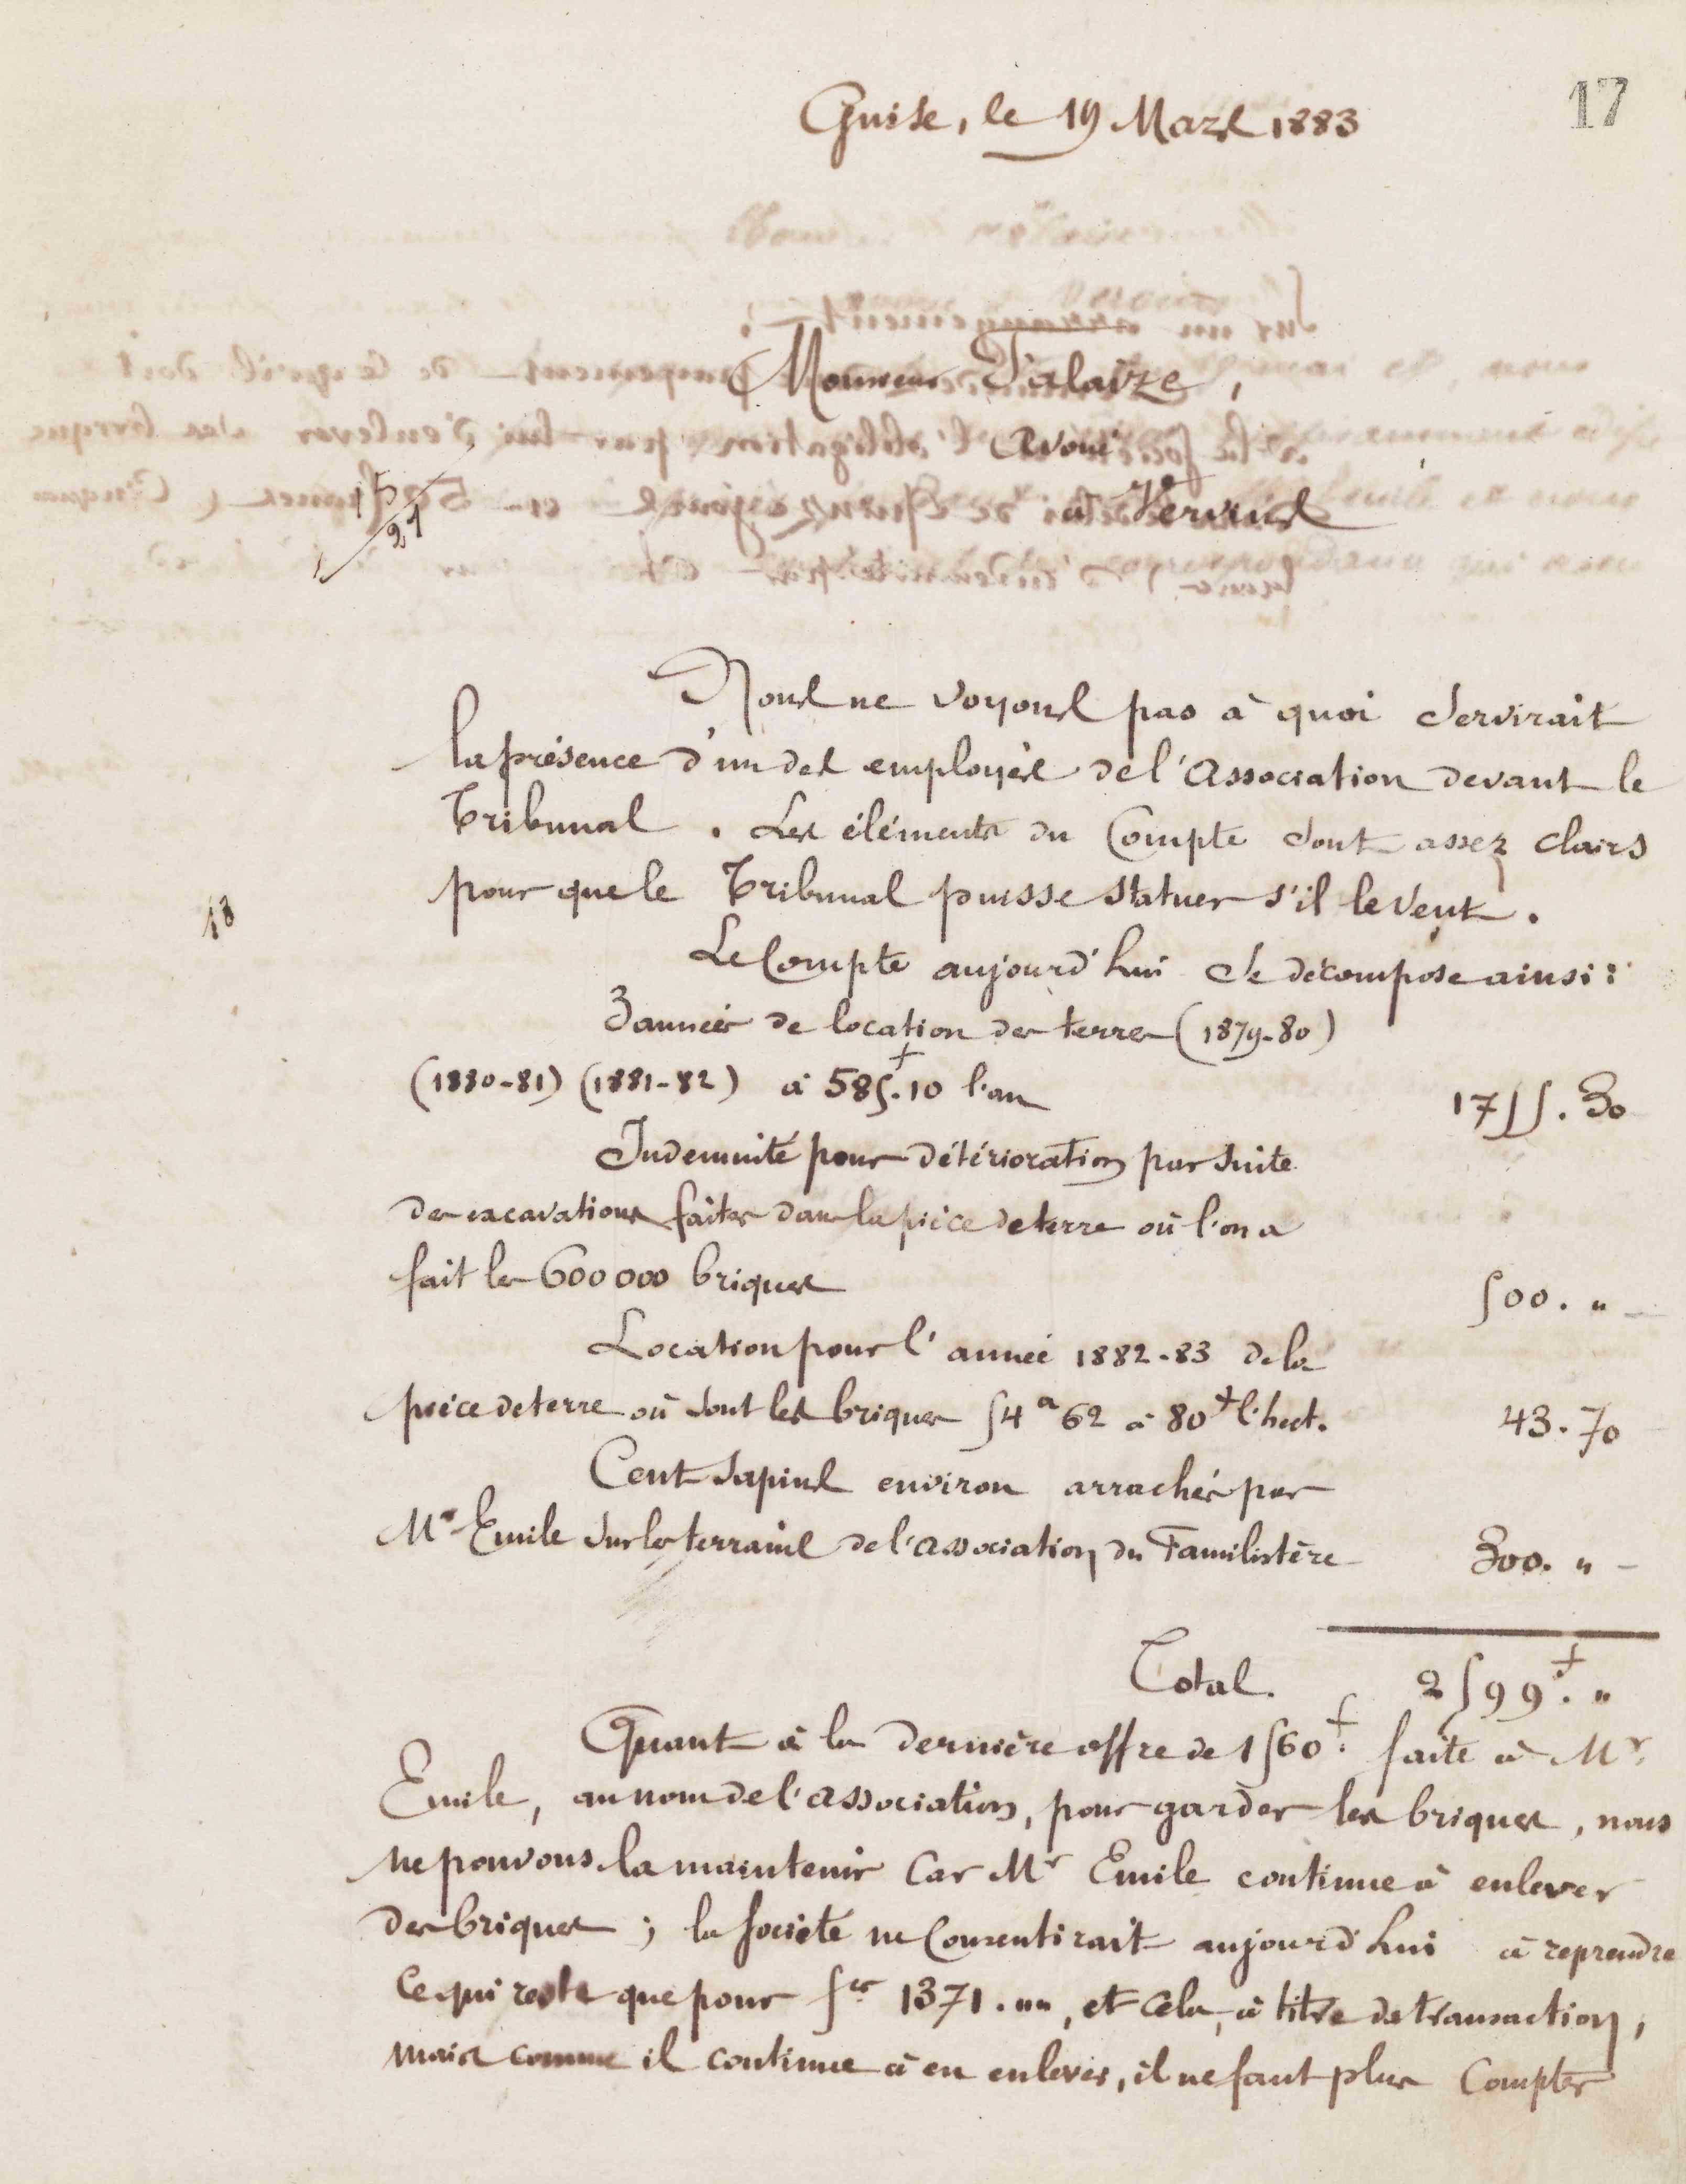 17
Guise, le 19 Mars 1883
Monsieur Falaize,
Avoué
à Vervins
15/21
Nous ne voyons pas à quoi servirait
la présence d'un des employés de l'Association devant le
Tribunal. Les éléments du Compte sont assez clairs
pour que le Tribunal puisse statuer s'il le veut.
18
Le Compte aujourd'hui se décompose ainsi :
3 années de location des terres (1879-80)
(1880-81) (1881-82) à 585f.10 l'an 1755.30
Indemnité pour détérioration par suite
des excavations faites dans la pièce de terre où l'on a
fait les 600 000 briques 500. "
Location pour l'année 1882-83 de la
pièce de terre où sont les briques 54a 62 à 80f l'hect. 43.70
Cent sapins environ arrachés par
Mr Emile sur les terrains de l'Association du Familistère 300. "
Total. 2599f. "
Quant à la dernière offre de 1560f. faite à Mr
Emile, au nom de l'Association, pour garder les briques, nous
ne pouvons la maintenir car Mr Emile continue à enlever
des briques ; la Société ne consentirait aujourd'hui à reprendre
ce qui reste que pour fcs 1371. "", et cela, à titre de transaction,
mais comme il continue à en enlever, il ne faut plus compter